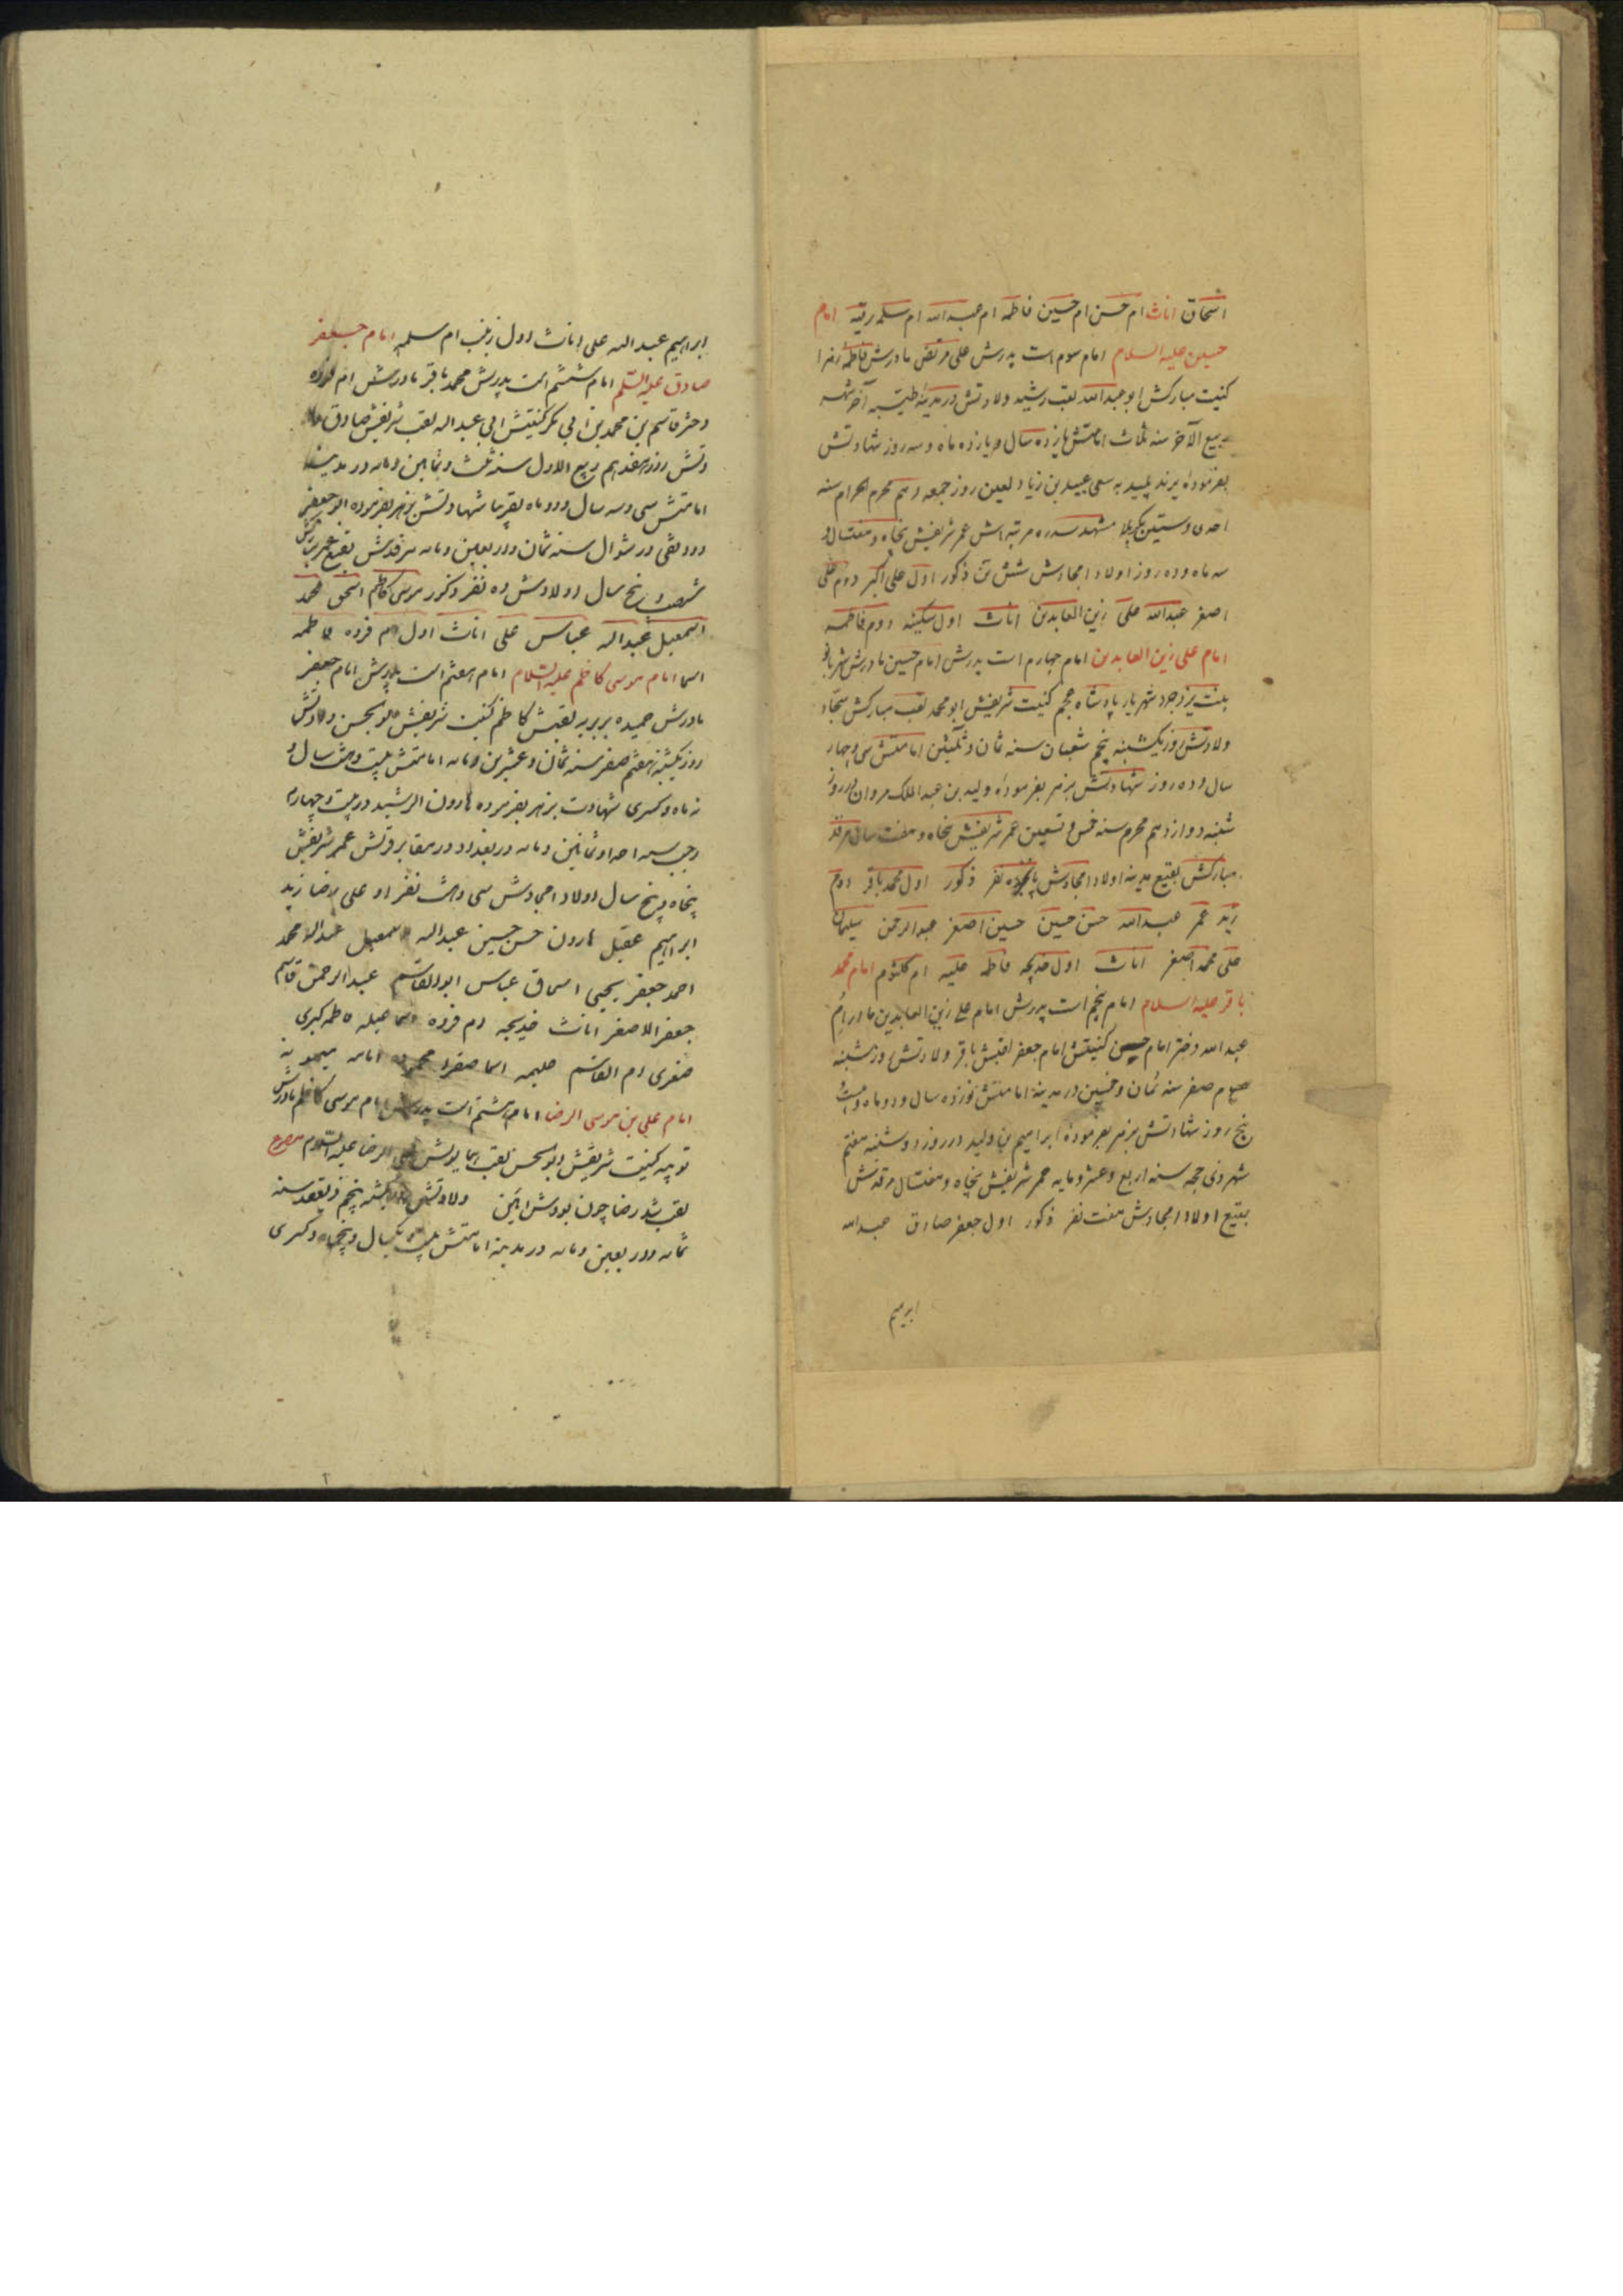 اسحاق اناث ام حسن ام حسین فاطمه ام عبدالله ام سلمه رقیه امام
حسین علیه السلام امام سوم است پدرش علی مرتضی مادرش فاطمه زهرا
کنیت مبارکش ابو عبدالله لقب رشید ولادتش در مدینه طیبه آخر شهر
ربیع الآخر سنه ثلاث امامتش یازده سال و یازده ماه و سه روز شهادتش
بفرموده یزید پلید به سعی عبید بن زیاد لعین روز جمعه دهم محرم الحرام سنه
احدی و ستین بکربلا مشهد سدره مرتبه اش عمر شریفش پنجاه و هفتسال و
سه ماه و ده روز اولاد امجادش شش تن ذکور اول علی اکبر دوم علی
اصغر عبدالله علی زین العابدین اناث اول سکینه دوم فاطمه
امام علی زین العابدین امام چهارم است پدرش امام حسین مادرش شهربانو
بنت یزدجرد شهریار پادشاه عجم کنیت شریفش ابو محمد لقب مبارکش سجاد
ولادتش روز یکشنبه پنجم شعبان سنه ثمان و ثلثین امامتش سی و چهار
سال و ده روز شهادتش بزهر بفرموده ولید بن عبد الملک مروان در روز
شنبه دوازدهم محرم سنه خمس و تسعین عمر شریفش پنجاه و هفت سال مرقد
مبارکش بقیع مدینه اولاد امجادش پانجده نفر ذکور اول محمد باقر دوم
زید عمر عبدالله حسن حسین حسین اصغر عبدالرحمن سلیمان
علی محمد اصغر اناث اول خدیجه فاطمه علیه ام کلثوم امام محمد
باقر علیه السلام امام پنجم است پدرش امام علی زین العابدین مادر ام
عبدالله دختر امام حسن کنیتش امام جعفر لقبش باقر ولادتش روز شنبه
صفر سنه ثمان و خمسین در مدینه امامتش نوزده سال و دو ماه و بیست
پنج روز شهادتش بزهر بفرموده ابراهیم بن ولید در روز دوشنبه هفتم
شهر ذی حجه سنه اربع و عشر و مایه عمر شریفش پنجاه و هفتسال مرقدش
بقیع اولاد امجادش هفت نفر ذکور اول جعفر صادق عبدالله
ابرهیم
ابراهیم عبدالله علی اناث اول زینب ام سلمه امام جعفر
صادق علیه السلم امام ششم است پدرش محمد باقر مادرش ام فروه
دختر قاسم بن محمد بن ابی بکر کنیتش ابی عبداله لقب شریفش صادق ولا
دتش روز هفدهم ربیع الاول سنه ثلث و ثمانین و مایه در مدینه
امامتش سی و سه سال و دو ماه تقریبا شهادتش بزهر بفرموده ابو جعفر
دوانقی در شوال سنه ثمان و اربعین و مایه مرقدش بقیع عمر مبارکش
شصت و پنج سال اولادش ده نفر ذکور موسی کاظم اسحق محمد
اسمعیل عبداله عباس علی اناث اول ام فروه فاطمه
اسما امام موسی کاظم علیه السلام امام هفتم است پدرش امام جعفر
مادرش حمیده بربریه لقبش کاظم کنیت شریفش ابو الحسن ولادتش
روز یکشنبه هفتم صفر سنه ثمان و عشرین و مایه امامتش بیست و هشت سال و
نه ماه و کسری شهادت بزهر بفرموده هارون الرشید در بیست و چهارم
رجب سنه احد و ثمانین و مایه در بغداد در مقابر قریش عمر شریفش
پنجاه و پنج سال اولاد امجادش سی و هشت نفر او علی رضا زید
ابراهیم عقیل هارون حسن حسین عبداله اسمعیل عبداله محمد
احمد جعفر یحیی اسحاق عباس ابو القاسم عبدالرحمن قاسم
جعفر الاصغر اناث خدیجه ام فروه فاطمه کبری
صغری ام القاسم حلیمه اسما صغرا محموده امامه میمونه
امام علی بن موسی الرضا امام هشتم است پدرش امام موسی کاظم مادرش
کنیت شریفش ابو الحسن لقب همایونش علی الرضا علیه السلام مصرع
لقب شد رضا چون بودش آیین ولادتش یکشنبه پنجم ذیقعد سنه
ثمان و اربعین و مایه در مدینه امامتش بیست و یکسال و پنجماه و کسری